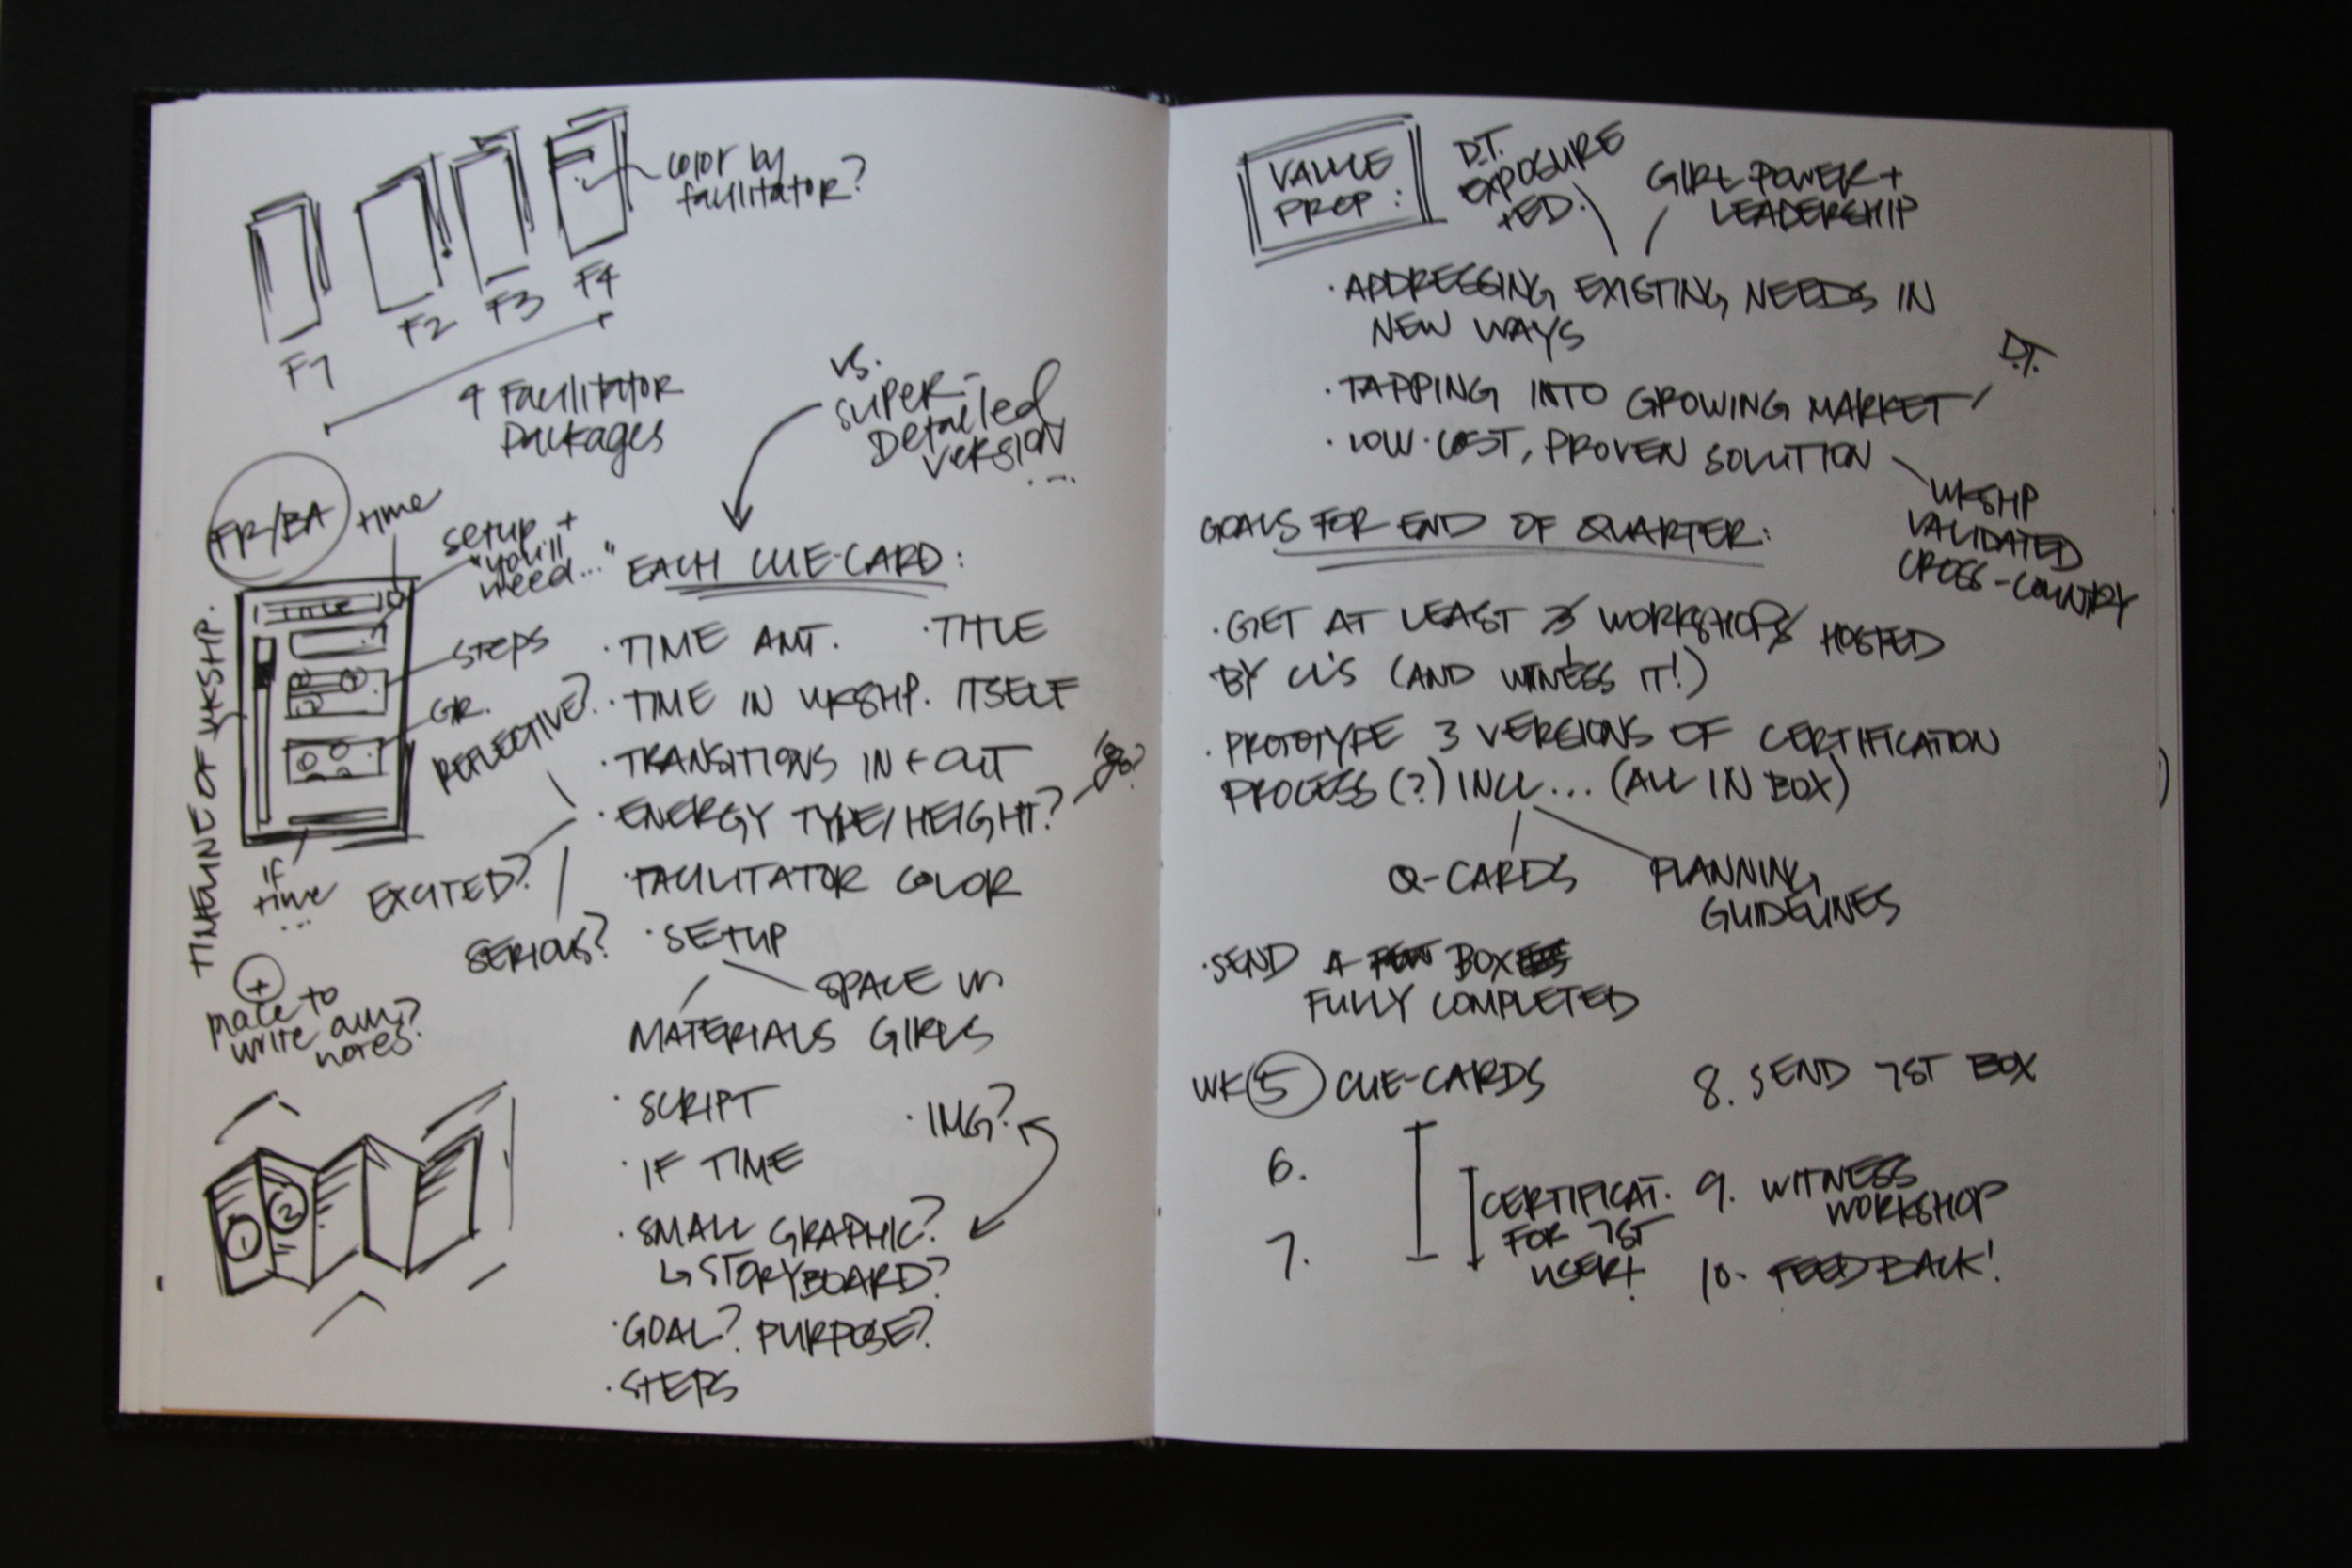 color by
facilitator?
F1
F2
F3
F4
4 Facilitator
Packages
vs.
super-
Detailed
version
...
FR/BA
time
setup +
"you'll
need..."
TITLE
STEPS
GR.
TIMELINE OF WKSHP.
IF
time
...
+
place to
write own
notes?
1
2
EACH CUE-CARD:
· TIME AMT.
· TITLE
· TIME IN WKSHP. ITSELF
· TRANSITIONS IN + OUT
· ENERGY TYPE/HEIGHT?
REFLECTIVE?
EXCITED?
SERIOUS?
· FACILITATOR COLOR
· SETUP
SPACE W
MATERIALS GIRLS
· SCRIPT
· IMG?
· IF TIME
· SMALL GRAPHIC?
↳ STORYBOARD?
· GOAL? PURPOSE?
· STEPS
VALUE
PROP:
D.T.
EXPOSURE
+ ED.
GIRL POWER +
LEADERSHIP
· ADDRESSING EXISTING NEEDS IN
NEW WAYS
D.T.
· TAPPING INTO GROWING MARKET
· LOW-COST, PROVEN SOLUTION
WKSHP
VALIDATED
CROSS-COUNTRY
GOALS FOR END OF QUARTER:
· GET AT LEAST WORKSHOP HOSTED
BY CL'S (AND WITNESS IT!)
· PROTOTYPE 3 VERSIONS OF CERTIFICATION
PROCESS (?) INCL... (ALL IN BOX)
Q-CARDS
PLANNING
GUIDELINES
· SEND A FEW BOX
FULLY COMPLETED
WK 5 CUE-CARDS
6.
7.
CERTIFICAT.
FOR 1ST
USER!
8. SEND 1ST BOX
9. WITNESS
WORKSHOP
10. FEEDBACK!